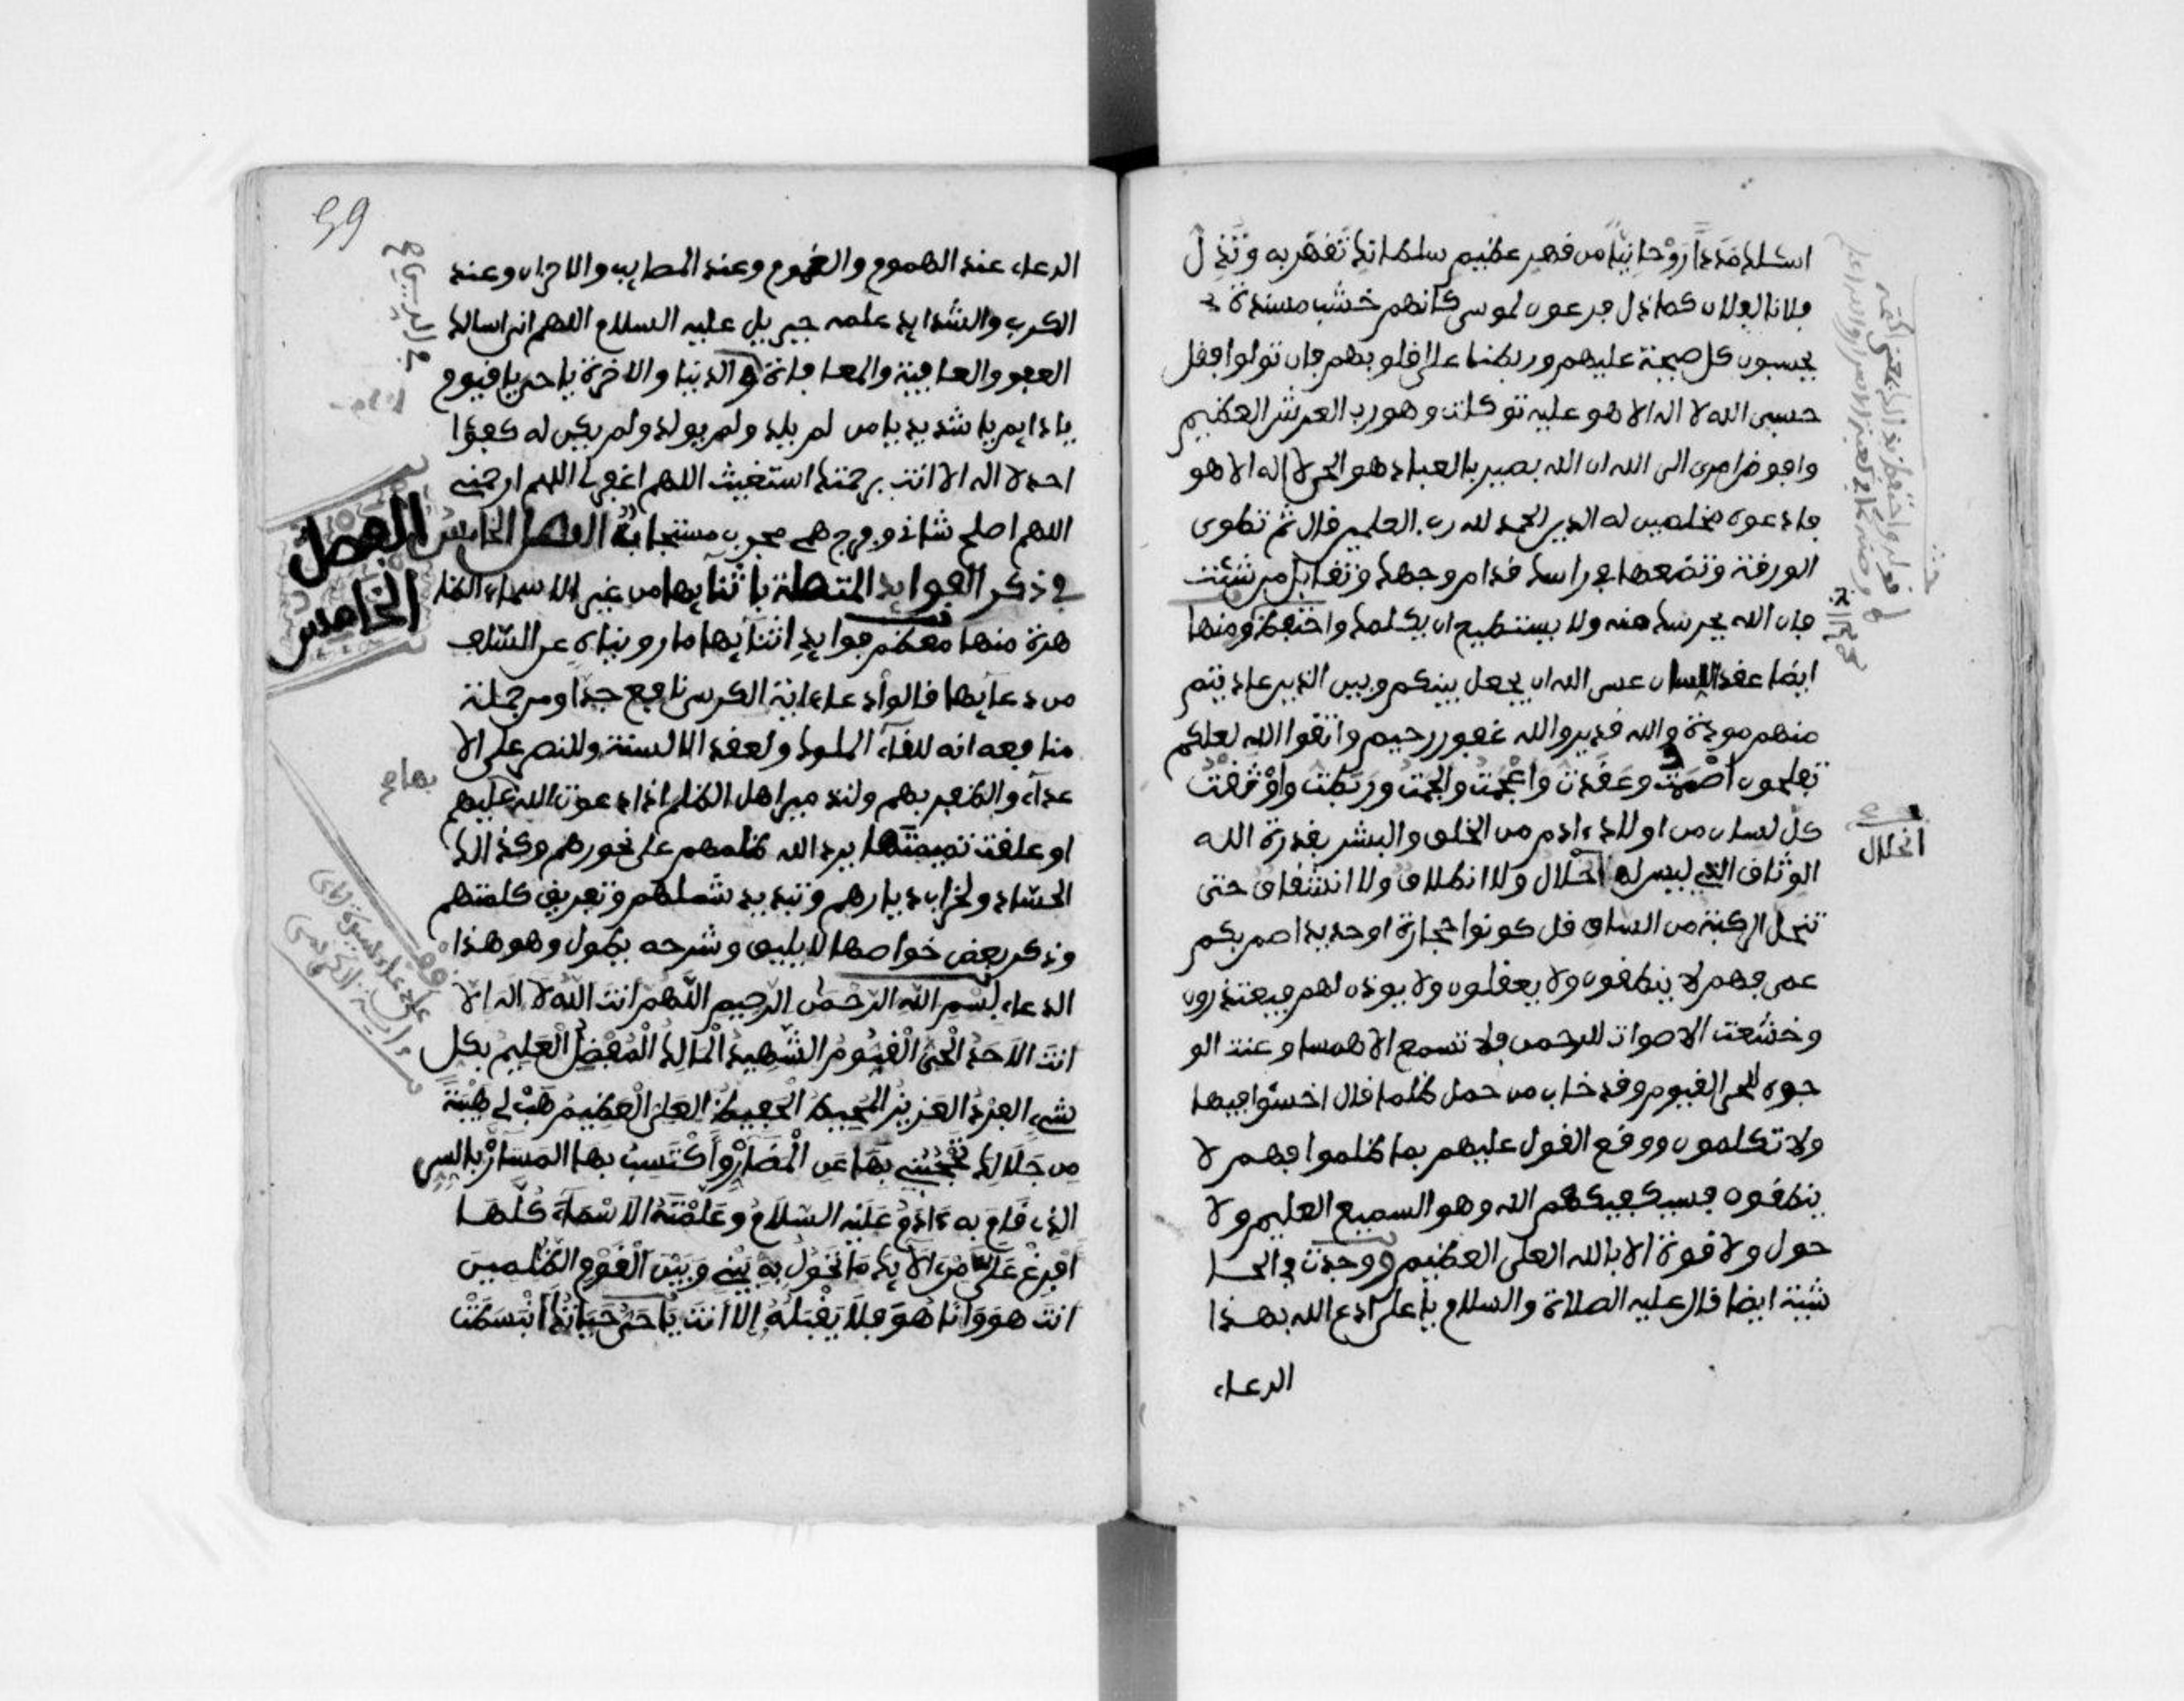 اسئلك مددا روحانيا من قهر عظيم سلطانك تقهر به وتذل
فلانا لفلان كما ذل فرعون لموسى كانهم خشب مسندة
يحسبون كل صيحة عليهم وربطنا على قلوبهم فان تولوا فقل
حسبى الله لا اله الا هو عليه توكلت وهو رب العرش العظيم
وافوض امرى الى الله ان الله بصير بالعباد هو الحى لا اله الا هو
فادعوه مخلصين له الدين الحمد لله رب العلمين قال ثم تطوى
الورقة وتضعها في راسك قدام وجهك وتقابل من شئت
فان الله يحرسك منه ولا يستطيع ان يكلمك واحتفظ ومنها
ايضا عقد اللسان عسى الله ان يجعل بينكم وبين الذين عاديتم
منهم مودة والله قدير والله غفور رحيم واتقوا الله لعلكم
تفلحون اصمت وعقدت واعجمت والجمت وربطت واوثقت
كل لسان من اولاد ءادم من الخلق والبشر بقدرة الله
الوثاق الذي ليس له انحلال ولا انطلاق ولا انشقاق حتى
تنحل الركبة من الساق قل كونوا حجارة او حديدا صم بكم
عمى فهم لا ينطقون ولا يعقلون ولا يوذن لهم فيعتذرون
وخشعت الاصوات للرحمن فلا تسمع الا همسا وعنت الو
جوه للحى القيوم وقد خاب من حمل ظلما قال اخسئوا فيها
ولا تكلمون ووقع القول عليهم بما ظلموا فهم لا
ينطقون فسيكفيكهم الله وهو السميع العليم ولا
حول ولا قوة الا بالله العلى العظيم ووجدت في الحا
شية ايضا قال عليه الصلاة والسلام يا على ادع الله بهذا
الدعاء
انحلال
59
الدعاء عند الهموم والغموم وعند المصايب والاحزان وعند
الكرب والشدايد علمه جبريل عليه السلام اللهم انى اسالك
العفو والعافية والمعافاة في الدنيا والاخرة يا حى يا قيوم
يا دايم يا شديد يا من لم يلد ولم يولد ولم يكن له كفؤا
احد لا اله الا انت برحمتك استغيث اللهم اغفر لى اللهم ارحمني
اللهم اصلح شانى وفرج همى مجرب مستجاب الفصل الخامس
في ذكر الفوايد المتصلة باثنايها من غير الاسماء الظا
هرة منها معظم فوايد اثنائها ما رويناه عن السلف
من دعايها قالوا دعاء اية الكرسى نافع جدا ومن جملة
منافعه انه للقاء الملوك ولعقد الالسنة وللنصر على الا
عداء والظفر بهم ولتدمير اهل الظلم اذا دعوت الله عليهم
او علقت تميمتها يرد الله ظلمهم على نحورهم وكذالك
الحساد ولخراب ديارهم وتبديد شملهم وتفريق كلمتهم
وذكر بعض خواصها لا يليق وشرحه يطول وهو هذا
الدعاء بسم الله الرحمن الرحيم اللهم انت الله لا اله الا
انت الاحد الحى القيوم الشهيد المالك المفضل العليم بكل
شيء الفرد العزيز المحيط الحفيظ العلى العظيم هب لى هيبة
من جلالك تحجبنى بها عن المضار واكتسب بها المسار بالسر
الذى قام به ءادم عليه السلام وعلمته الاسماء كلها
افرغ على من الايد ما تحول به بينى وبين القوم الظلمين
انت هو وانا هو فلا يقبله الا انت يا حى حياتك انبسطت
الفصل
الخامس